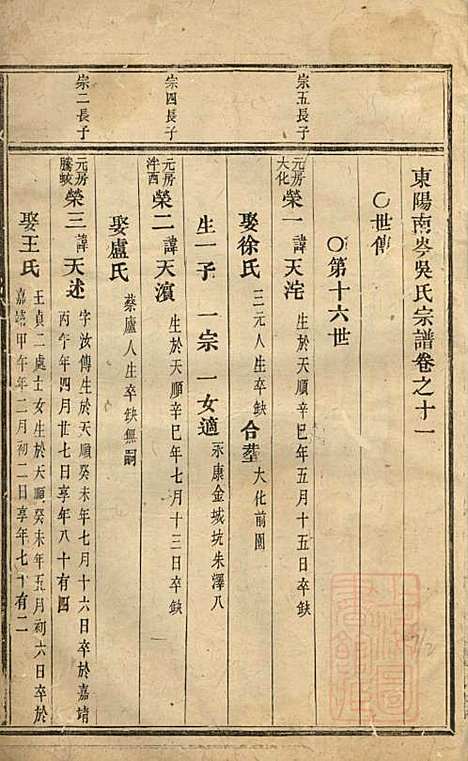 東陽南岑吳氏宗譜卷之十一
○世傳
○第十六世
宗五長子
元房大化
榮一 諱天澤 生於天順辛巳年五月十五日卒缺
娶徐氏 三元人生卒缺 合塟 大化前園
生一子 一宗 一女適 永康金城坑朱澤八
宗四長子
元房泮西
榮二 諱天濱 生於天順辛巳年七月十三日卒缺
娶盧氏 蔡廬人生卒缺無嗣
宗二長子
元房騰蛟
榮三 諱天述 字汝傳生於天順癸未年七月十六日卒於嘉靖
丙午年四月廿七日享年八十有四
娶王氏 王貞二處士女生於天順癸未年五月初六日卒於
嘉靖甲午年二月初二日享年七十有二